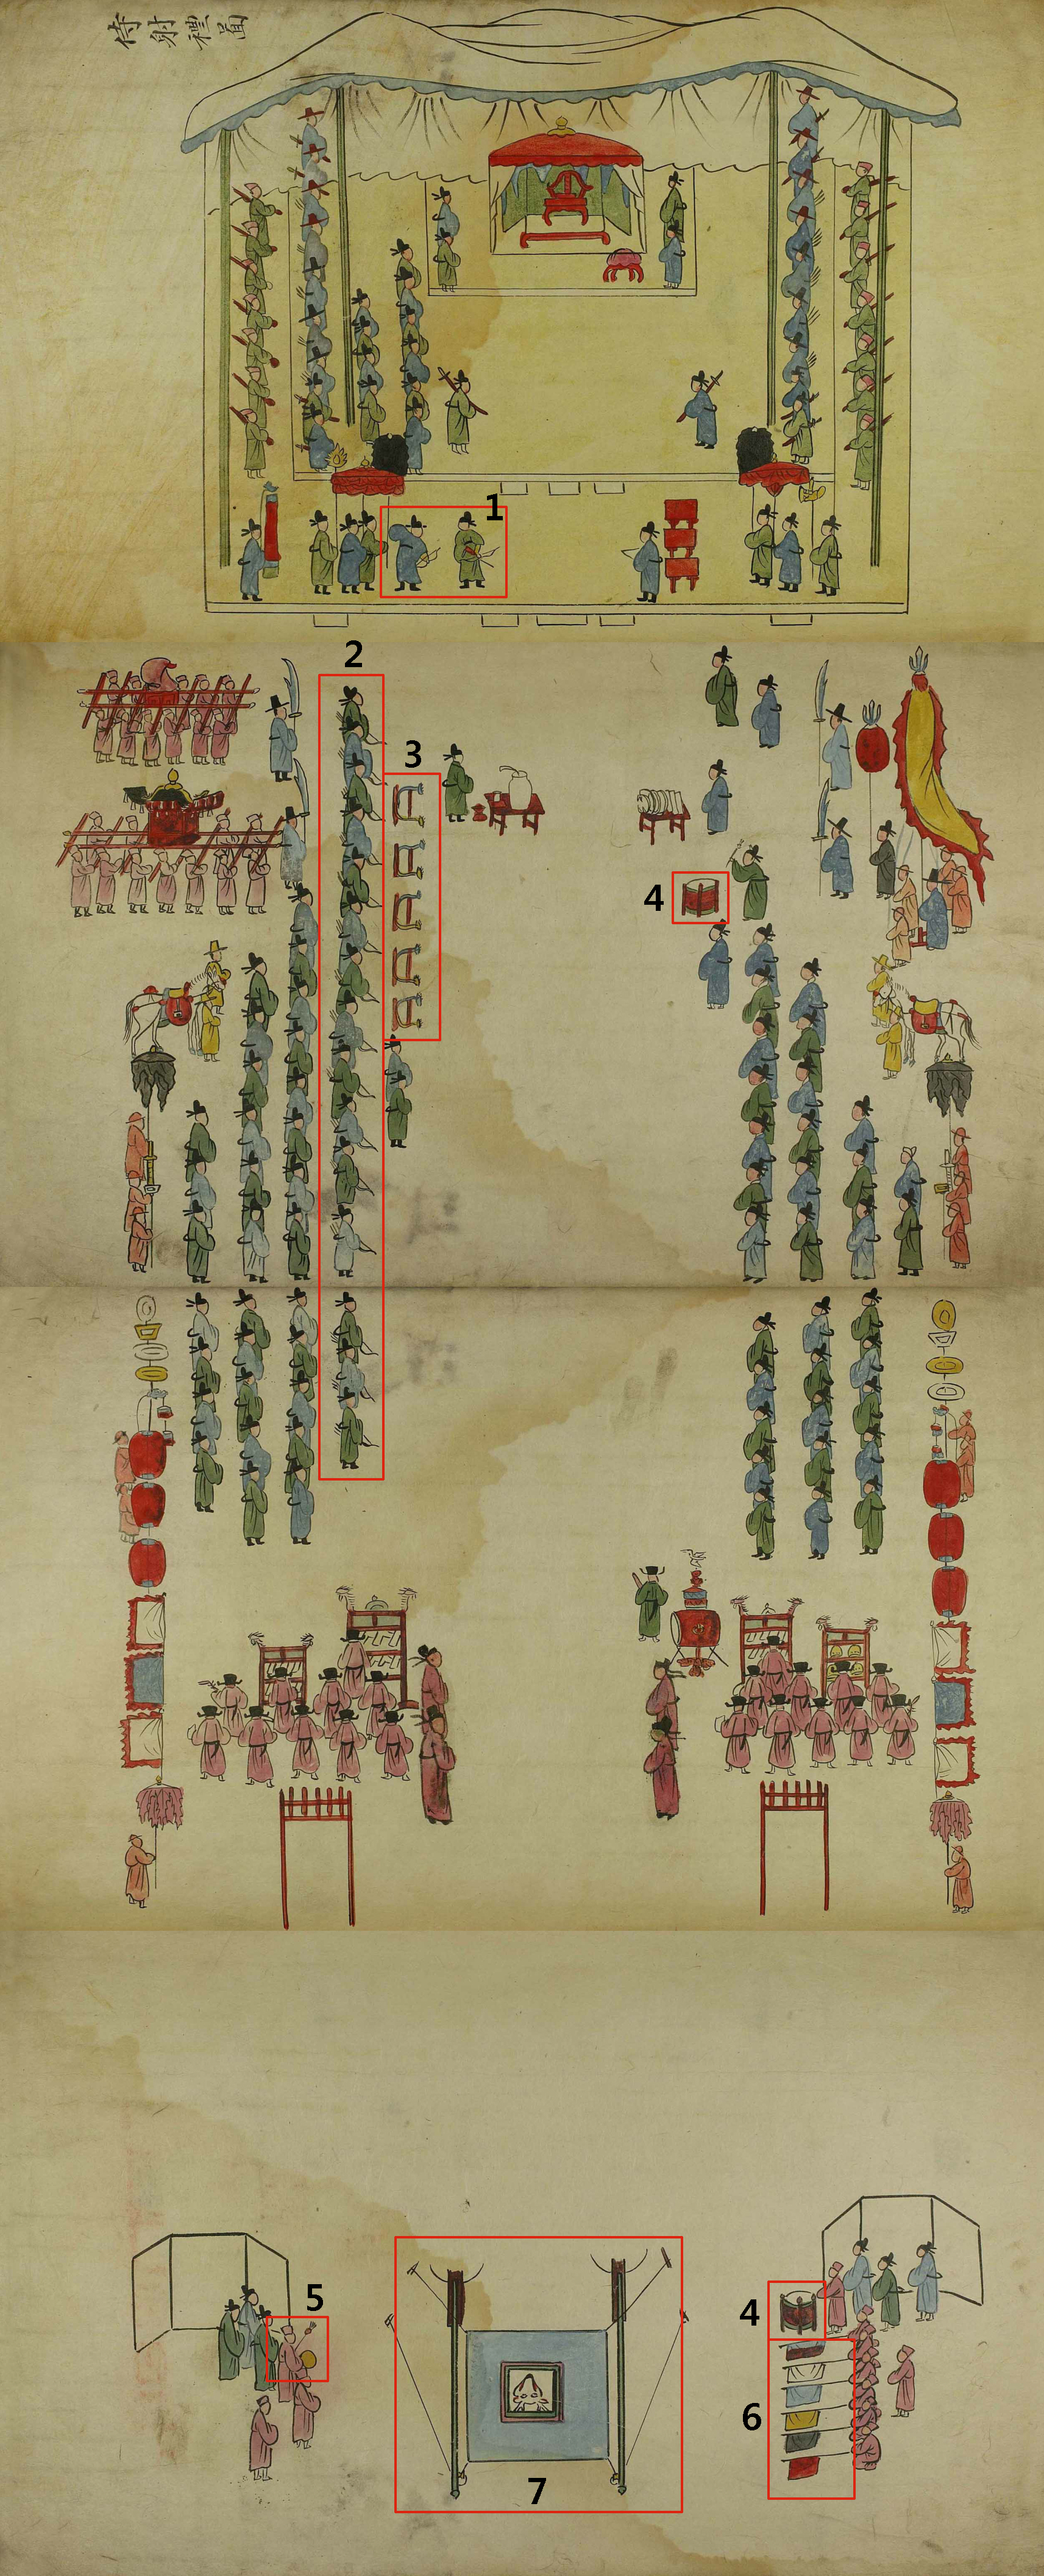 侍射禮啚
1
2
3
4
5
4
6
7